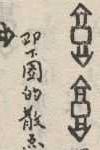 即下图的散点